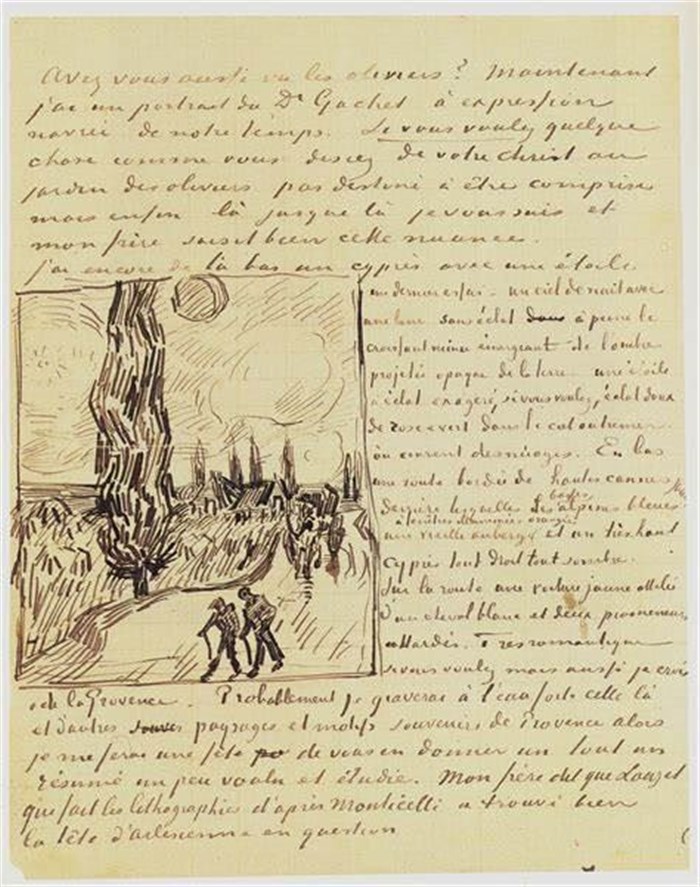 Avez vous aussi vu les oliviers? Maintenant
j'ai un portrait du Dr Gachet à expression
navrée de notre temps. Si vous voulez quelque
chose comme vous disiez de votre Christ au
jardin des oliviers pas destiné à être compris
mais enfin là jusque là je vous suis et
mon frère saisit bien cette nuance.
j'ai encore de là bas un cyprès avec une étoile
un dernier essai – un ciel de nuit avec
une lune sans éclat à peine le
croissant mince émergeant de l'ombre
projetée opaque de la terre – une étoile
à éclat exagéré, si vous voulez, éclat doux
de rose et vert dans le ciel outremer
où courent des nuages. En bas
une route bordée de hautes cannes
derrière lesquelles les basses alpines bleues
une vieille auberge à fenêtres illuminées orangée et un très haut
cyprès tout droit tout sombre.
Sur la route une voiture jaune attelée
d'un cheval blanc et deux promeneurs
attardés. Très romantique
si vous voulez mais aussi je crois
de la Provence. Probablement je graverai à l'eau forte celle là
et d'autres paysages et motifs souvenirs de Provence alors
je me ferai une fête de vous en donner un tout un
résumé un peu voulu et étudié. Mon frère dit que Lauzet
qui fait les lithographies d'après Monticelli a trouvé bien
la tête d'arlésienne en question